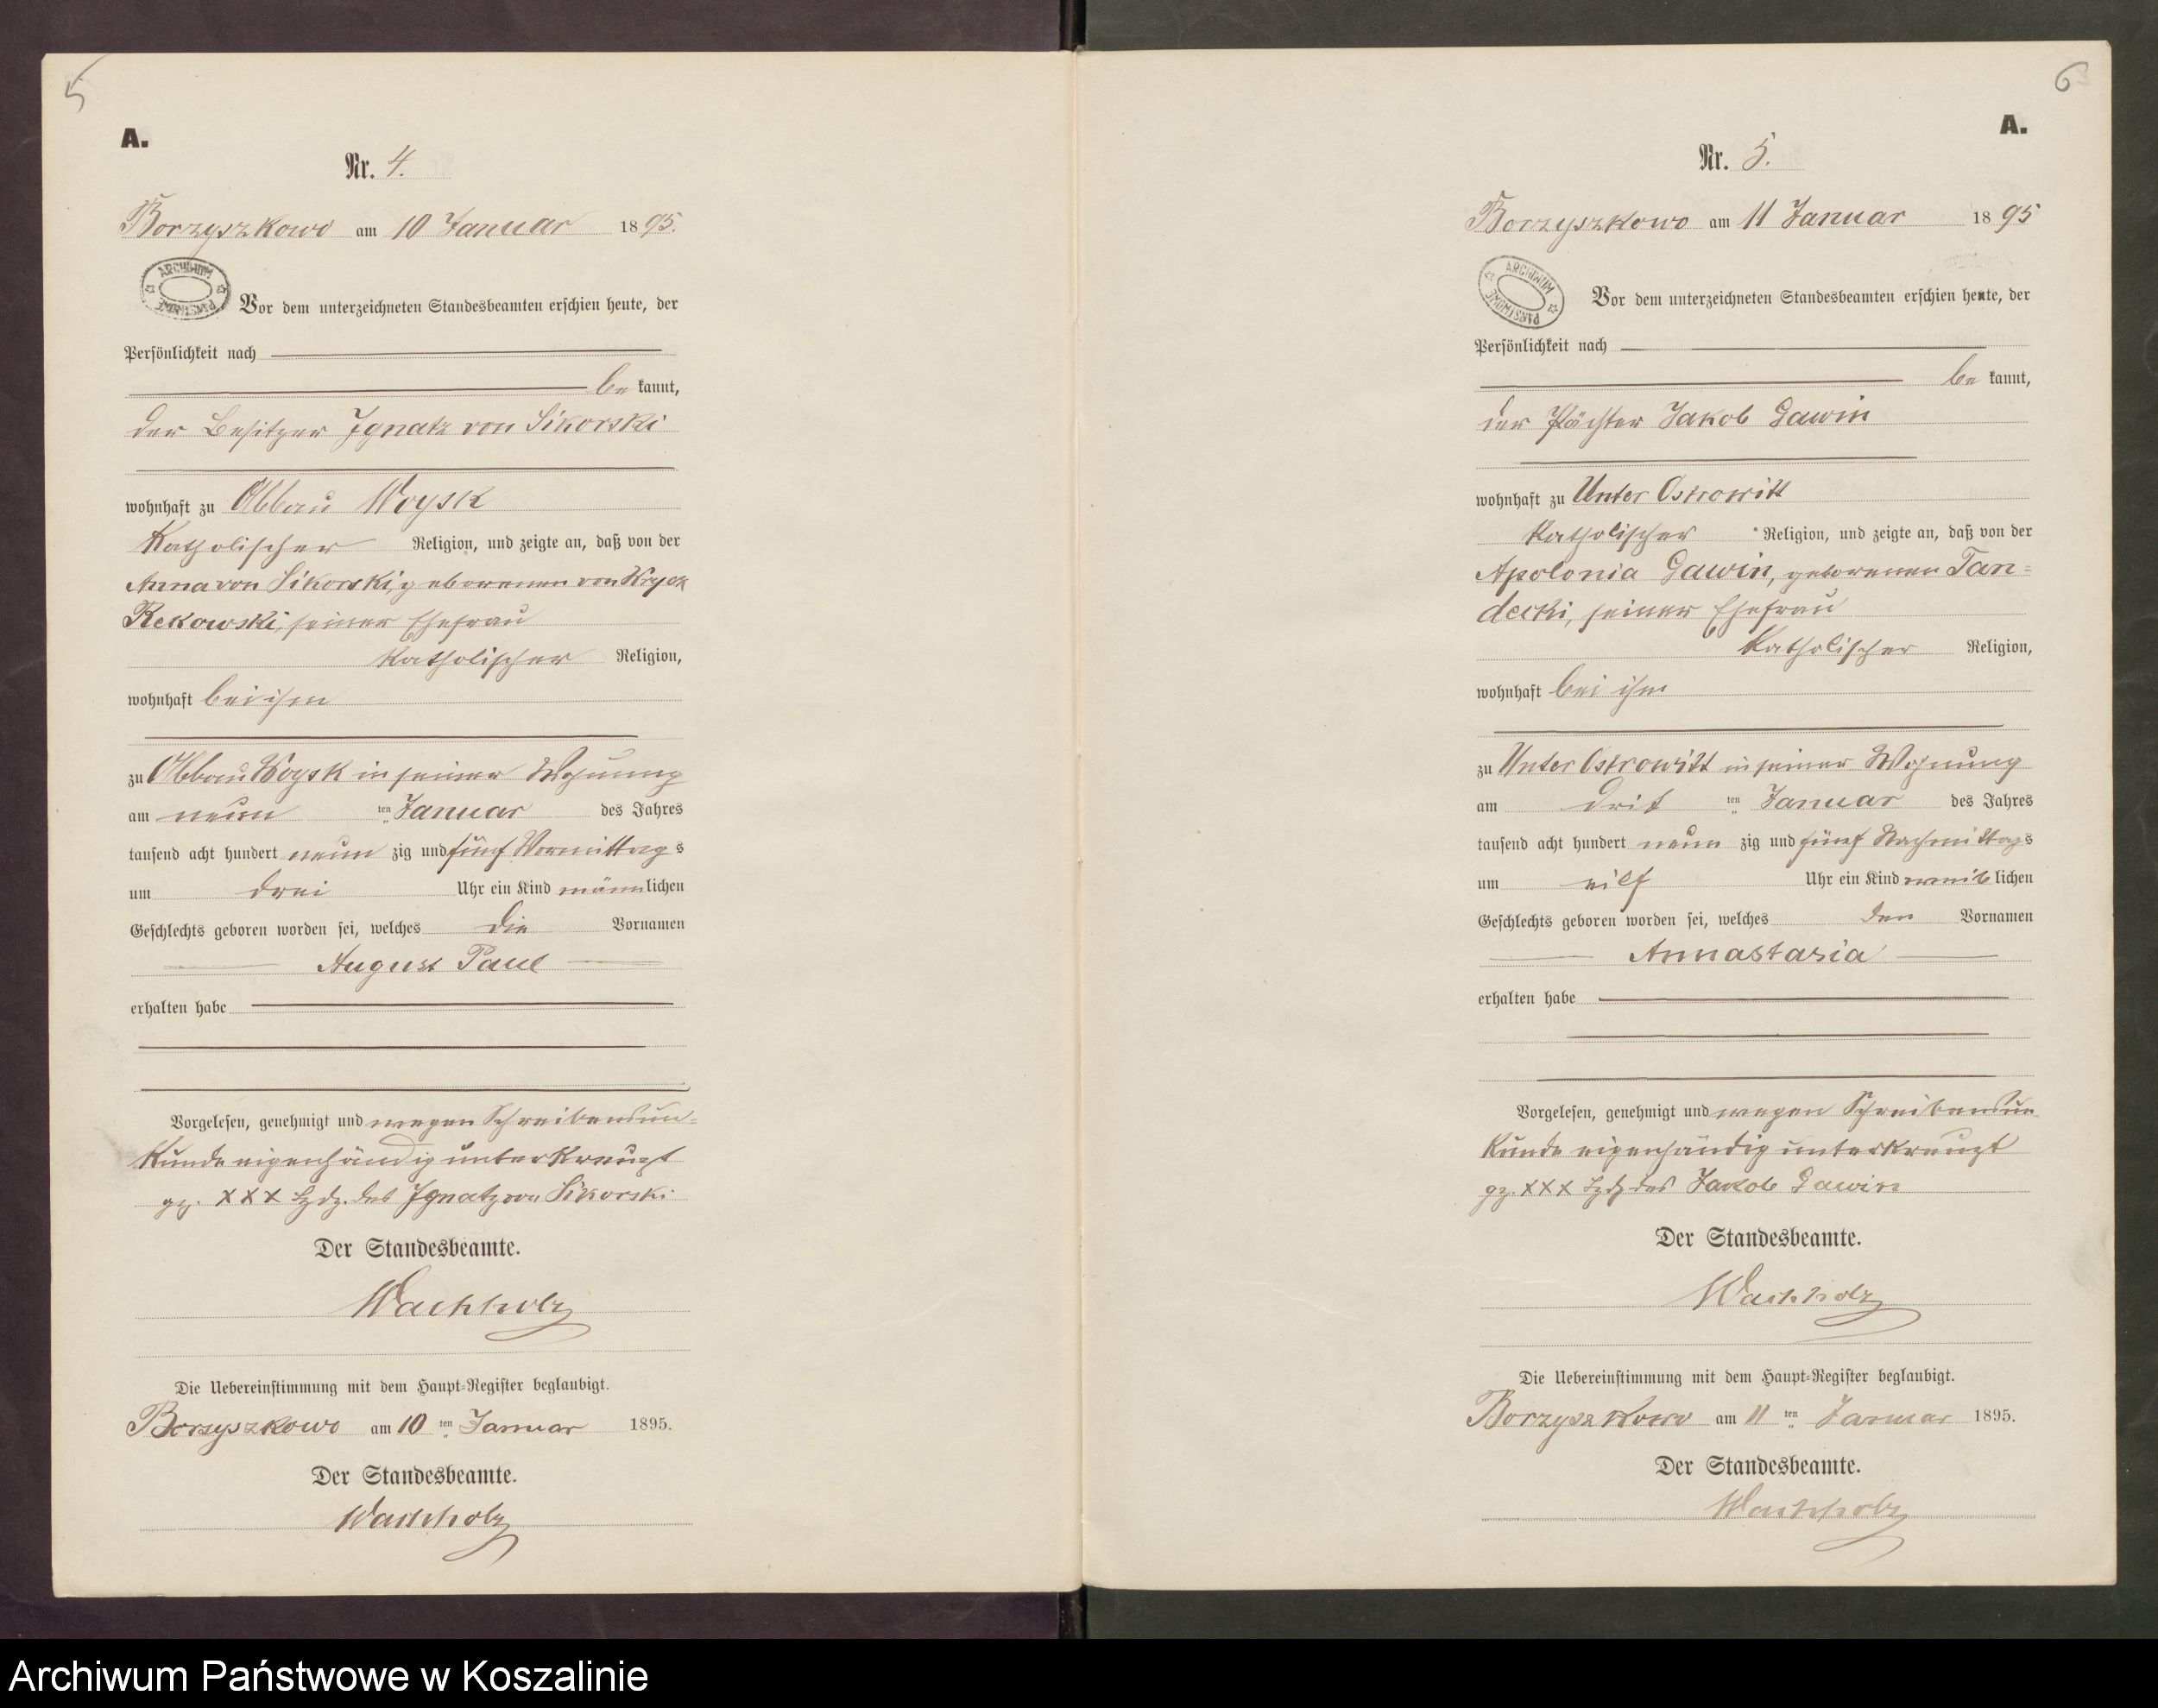 5
A.
Nr. 4.
Borzyszkowo am 10 Januar 1895.
ARCHIWUM PAŃSTWOWE
Vor dem unterzeichneten Standesbeamten erschien heute, der
Persönlichkeit nach
bekannt,
der Besitzer Ignatz von Sikorski
wohnhaft zu Abbau Woysk
Katholischer Religion, und zeigte an, daß von der
Anna von Sikorski, geborenen von
Rekowski, seiner Ehefrau
katholischer Religion,
wohnhaft bei ihm
zu Abbau Woysk in seiner Wohnung
am neun ten Januar des Jahres
tausend acht hundert neunzig und fünf Vormittags
um drei Uhr ein Kind männlichen
Geschlechts geboren worden sei, welches die Vornamen
August Paul
erhalten habe
Vorgelesen, genehmigt und wegen Schreibensun-
kunde eigenhändig unterkreuzt
gz. XXX Hzdz. des Ignatz von Sikorski
Der Standesbeamte.
Wachholz
Die Uebereinstimmung mit dem Haupt-Register beglaubigt.
Borzyszkowo am 10 ten Januar 1895.
Der Standesbeamte.
Wachholz
6
A.
Nr. 5.
Borzyszkowo am 11 Januar 1895
ARCHIWUM PAŃSTWOWE
Vor dem unterzeichneten Standesbeamten erschien heute, der
Persönlichkeit nach
bekannt,
der Pächter Jakob Gawin
wohnhaft zu Unter Ostrowitt
katholischer Religion, und zeigte an, daß von der
Apolonia Gawin, geborenen Tan=
decki, seiner Ehefrau
katholischer Religion,
wohnhaft bei ihm
zu Unter Ostrowitt in seiner Wohnung
am drit ten Januar des Jahres
tausend acht hundert neunzig und fünf Nachmittags
um eilf Uhr ein Kind weiblichen
Geschlechts geboren worden sei, welches den Vornamen
Annastasia
erhalten habe
Vorgelesen, genehmigt und wegen Schreibensun
kunde eigenhändig unterkreuzt
gz. XXX Hzdz des Jakob Gawin
Der Standesbeamte.
Wachholz
Die Uebereinstimmung mit dem Haupt-Register beglaubigt.
Borzyszkowo am 11 ten Januar 1895.
Der Standesbeamte.
Wachholz
Archiwum Państwowe w Koszalinie